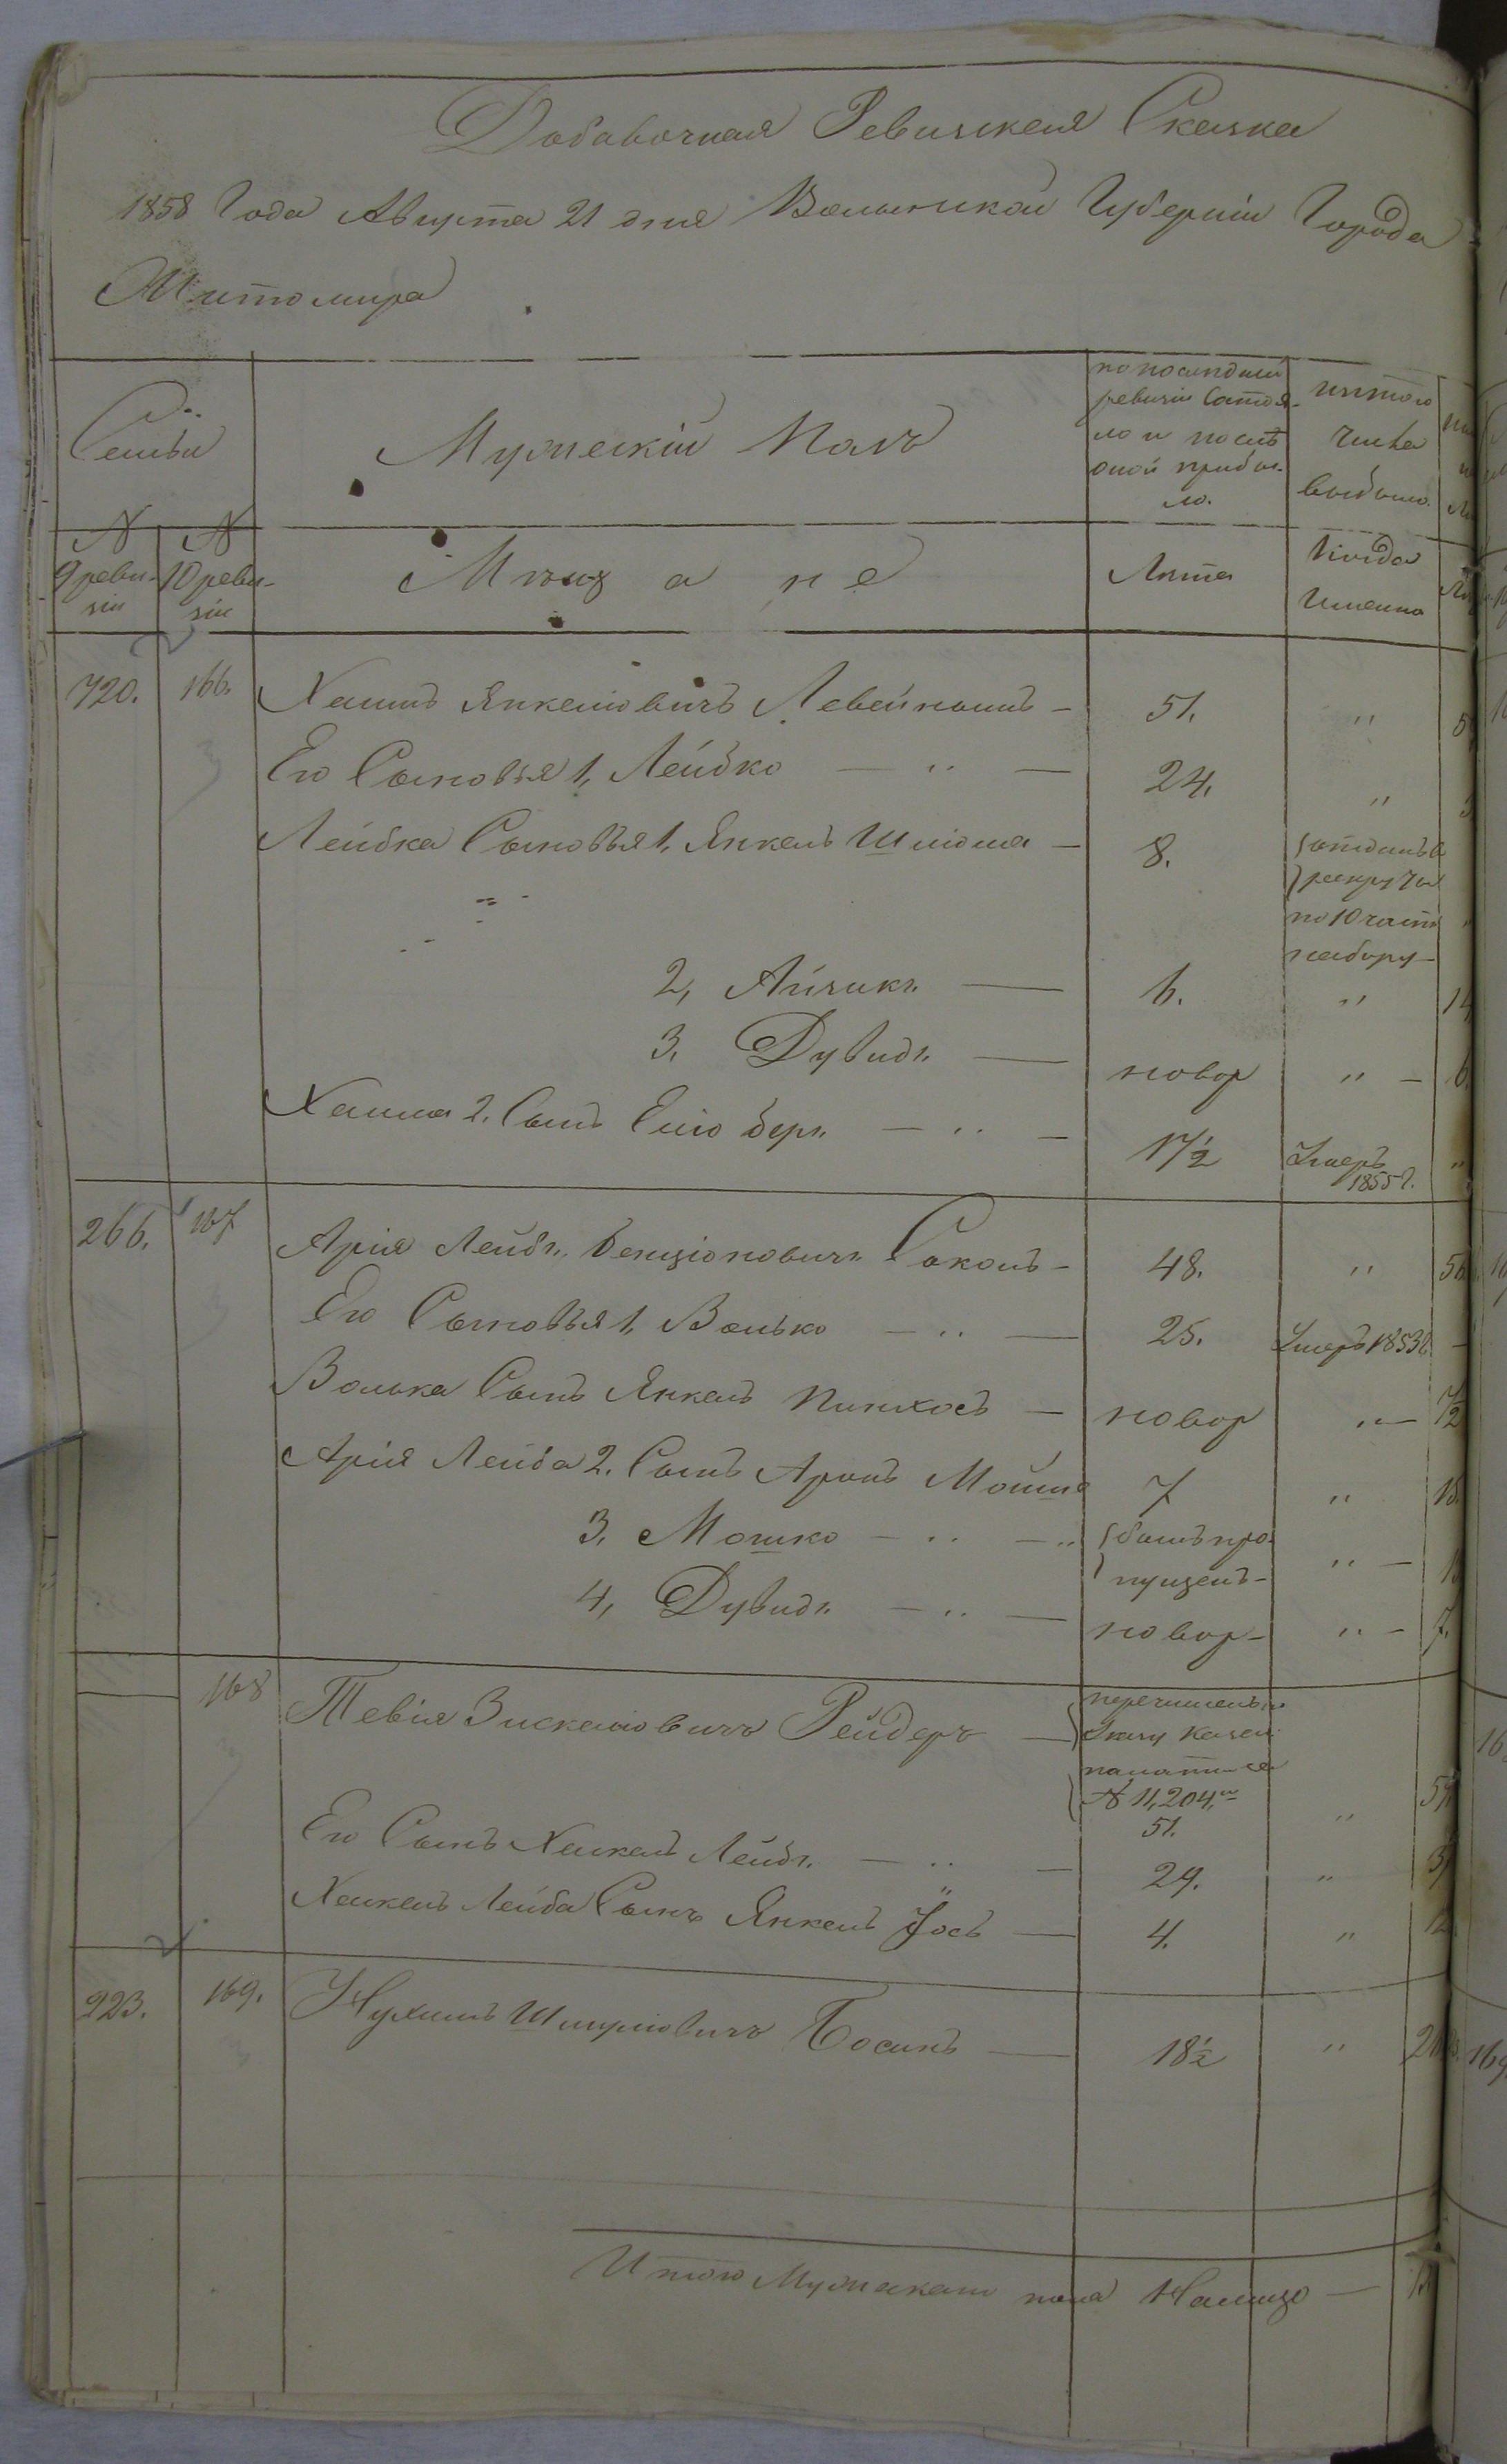 Добавочная Ревизская Сказка
1858 Года Августа 21 дня Волынской Губерніи Города
Житомира
Семьи
Мужескій Полъ
по последней
ревизіи Состоя-
ло и послѣ
оной прибы-
ло.
изъ того
числа
выбыло.
N
9 реви-
зіи
N
10 реви-
зіи
Мѣщане
Лѣта
Когда
Именно
720. 166. Хаимъ Янкелiовичъ Левейкошъ - 51. "
Его Сыновья 1, Лейбко — " — 24. "
Лейбка Сыновья 1, Янкель Шліома — 8. отданъ в
рекруты
по 10 част
набору -
2, Айзикъ — 6. " 14
3. Дувидъ — новор " - 6.
Хаима 2. Сынъ Еліо Беръ — " — 17½ Умеръ
1855 г.
266. 167 Арія Лейбъ Бенціоновичъ Соколъ - 48. " 56
Его Сыновья 1, Волько — " — 25. Умеръ 1853 г.
Волька Сынъ Янкель Пинхосъ — новор " — 7½
Арія Лейба 2. Сынъ Аронъ Мойше 7 " 15.
3. Мошко — " — " былъ про-
пущенъ - " —
4, Дувидъ — " — новор - " - 7.
168 Тевія Зискелiовичъ Рейдеръ — перечисленъ по
Указу Казен
палаты за
N 11,204,
51. "
Его Сынъ Хаскель Лейбъ — " — 29. "
Хаскель Лейба Сынъ Янкель Іось — 4. " 12
223. 169. Нухимъ Шмулiовичъ Босинъ — 18½ "
Итого Мужескаго пола На лицо —